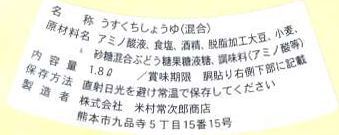 名　　称　うすくちしょうゆ(混合)
原材料名　アミノ酸液、食塩、酒精、脱脂加工大豆、小麦、
砂糖混合ぶどう糖果糖液糖、調味料(アミノ酸等)
内 容 量　1.8ℓ　／賞味期限　胴貼り右側下部に記載
保存方法　直射日光を避け常温で保存してください
製 造 者　株式会社　米村常次郎商店
熊本市九品寺5丁目15番15号